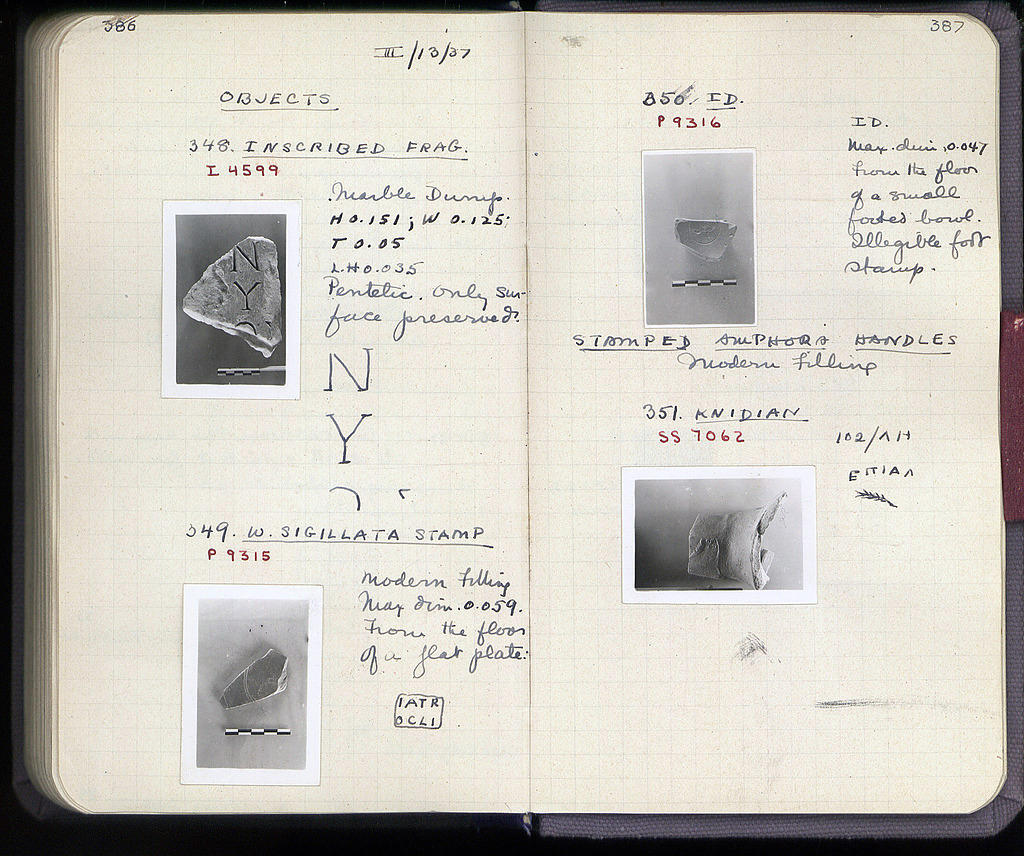 386
III/13/37
OBJECTS
348. INSCRIBED FRAG.
I 4599
Marble Dump.
H 0.151; W 0.125;
T 0.05
L.H 0.035
Pentelic. Only sur-
face preserved.
N
Y
N
Y
349. W. SIGILLATA STAMP
P 9315
Modern Filling
Max dim. 0.059.
From the floor
of a flat plate.
IATR
OCLI
387
350. ID.
P 9316
ID.
Max. dim. 0.047
From the floor
of a small
footed bowl.
Illegible foot
stamp.
STAMPED AMPHORA HANDLES
Modern Filling
351. KNIDIAN
SS 7062
102/ΛΗ
ΕΠΙΑΛ